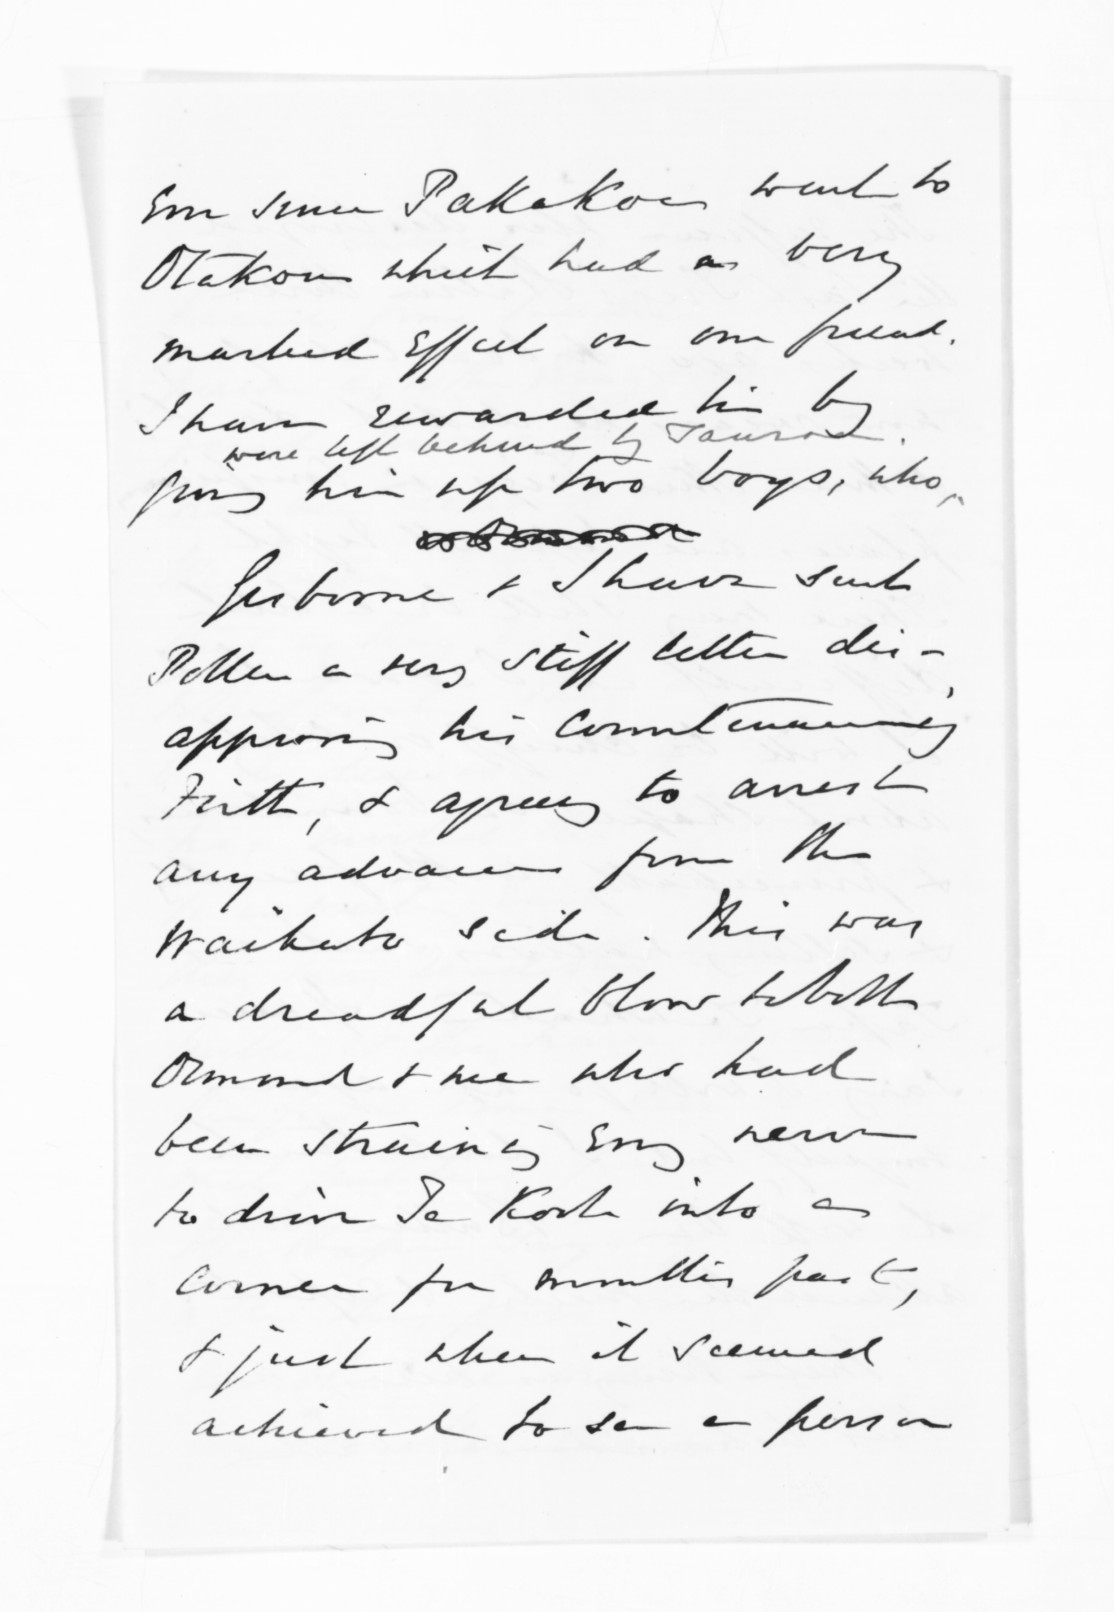 Ever since Pakakoa went to
Otakou which had a very
marked effect on our friend.
I have rewarded him by
were left behind by Tauroa.
giving him up two boys, who,
Gisborne & I have sent
Pollen a very stiff letter dis-
approving his countenancing
Firth, & agreeing to arrest
any advance from the
Waikato side. This was
a dreadful blow to both
Ormond & me who had
been straining every nerve
to drive Te Kooti into a
corner for months past,
& just when it seemed
achieved to see a person